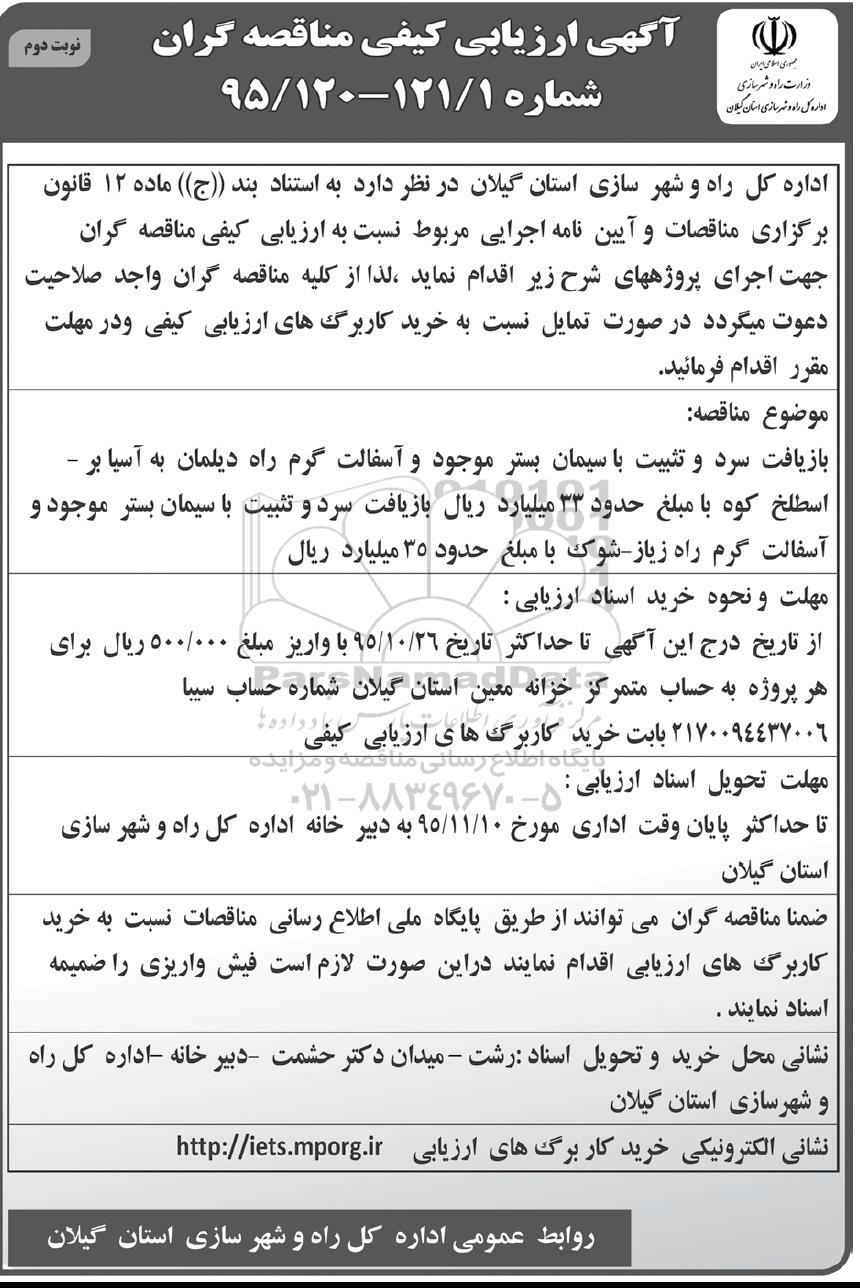 آگهی ارزیابی کیفی مناقصه گران
شماره ۹۵/۱۲۰-۱۲۱/۱
نوبت دوم
جمهوری اسلامی ایران
وزارت راه و شهرسازی
اداره کل راه و شهرسازی استان گیلان
اداره کل راه و شهر سازی استان گیلان در نظر دارد به استناد بند ((ج)) ماده ۱۲ قانون
برگزاری مناقصات و آیین نامه اجرایی مربوط نسبت به ارزیابی کیفی مناقصه گران
جهت اجرای پروژههای شرح زیر اقدام نماید ،لذا از کلیه مناقصه گران واجد صلاحیت
دعوت میگردد در صورت تمایل نسبت به خرید کاربرگ های ارزیابی کیفی ودر مهلت
مقرر اقدام فرمائید.
موضوع مناقصه:
بازیافت سرد و تثبیت با سیمان بستر موجود و آسفالت گرم راه دیلمان به آسیا بر -
اسطلخ کوه با مبلغ حدود ۳۳ میلیارد ریال بازیافت سرد و تثبیت با سیمان بستر موجود و
آسفالت گرم راه زیاز-شوک با مبلغ حدود ۳۵ میلیارد ریال
مهلت و نحوه خرید اسناد ارزیابی :
از تاریخ درج این آگهی تا حداکثر تاریخ ۹۵/۱۰/۲۶ با واریز مبلغ ۵۰۰/۰۰۰ ریال برای
هر پروژه به حساب متمرکز خزانه معین استان گیلان شماره حساب سیبا
۲۱۷۰۰۹۴۴۳۷۰۰۶ بابت خرید کاربرگ ها ی ارزیابی کیفی
مهلت تحویل اسناد ارزیابی :
تا حداکثر پایان وقت اداری مورخ ۹۵/۱۱/۱۰ به دبیر خانه اداره کل راه و شهر سازی
استان گیلان
ضمنا مناقصه گران می توانند از طریق پایگاه ملی اطلاع رسانی مناقصات نسبت به خرید
کاربرگ های ارزیابی اقدام نمایند دراین صورت لازم است فیش واریزی را ضمیمه
اسناد نمایند .
نشانی محل خرید و تحویل اسناد :رشت – میدان دکتر حشمت -دبیر خانه –اداره کل راه
و شهرسازی استان گیلان
نشانی الکترونیکی خرید کار برگ های ارزیابی http://iets.mporg.ir
روابط عمومی اداره کل راه و شهر سازی استان گیلان
ParsNamadData
پایگاه اطلاع رسانی مناقصه و مزایده
۰۲۱-۸۸۳۴۹۶۷۰-۵